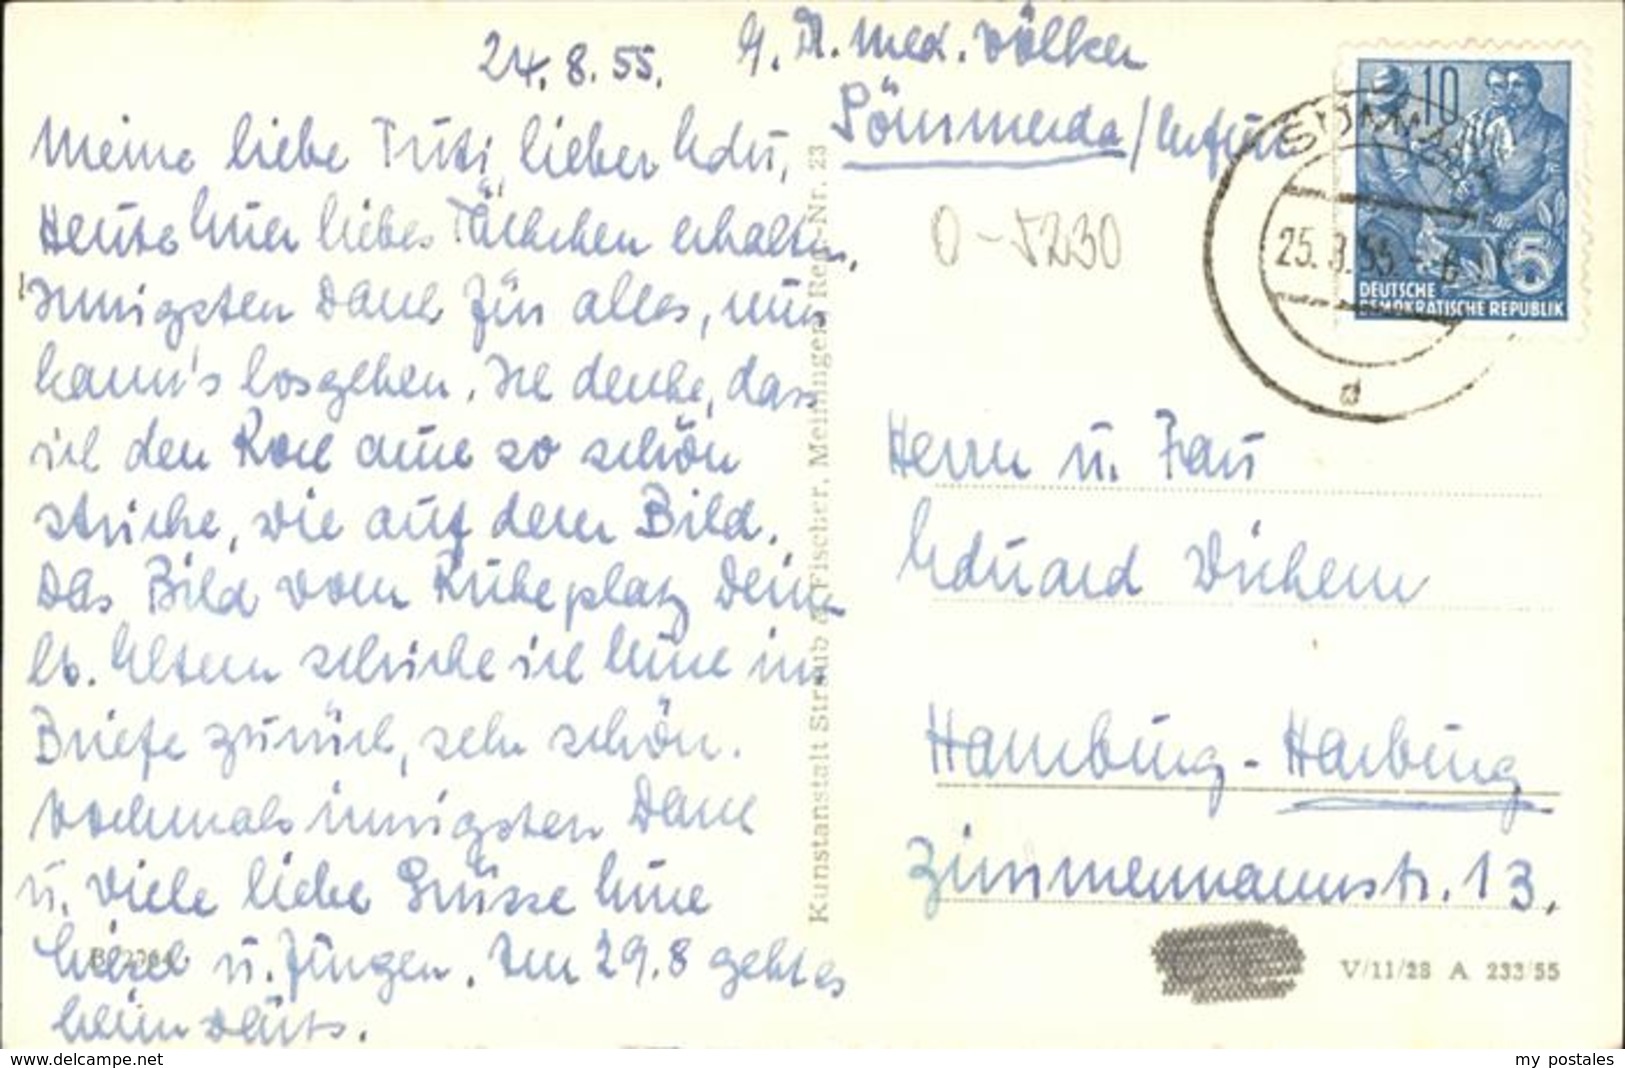 24.8.55.
Dr. med. Völker
Sömmerda/Erfurt
Meine liebe Trüti, lieber Edu,
Heute Euer liebes Päckchen erhalten.
Innigsten Dank für alles, nun
kann's losgehen. Ich denke, dass
ich den Rock auch so schön
stricke, wie auf dem Bild.
Das Bild vom Ruheplatz Deiner
lb. Eltern schicke ich Euch im
Briefe zurück, sehr schön.
Nochmals innigsten Dank
u. viele liebe Grüsse Eure
u. Jungen. Am 29.8 geht es
heimwärts.
Kunstanstalt Straub & Fischer, Meiningen Reg.-Nr. 23
0-5230
10
25.8.55
5
DEUTSCHE
DEMOKRATISCHE REPUBLIK
d
Herrn u. Frau
Eduard Wichern
Hamburg-Harburg
Zimmermannstr. 13,
V/11/28 A 233/55
www.delcampe.net
my postales